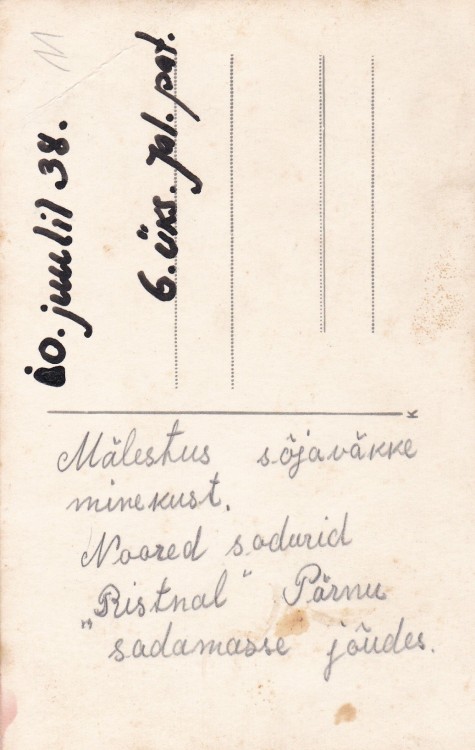 juulil 38.
6. üks. jal. pat.
K
Mälestus sõjaväkke
minekust.
Noored sodurid
"Ristnal" Pärnu
sadamasse jõudes.